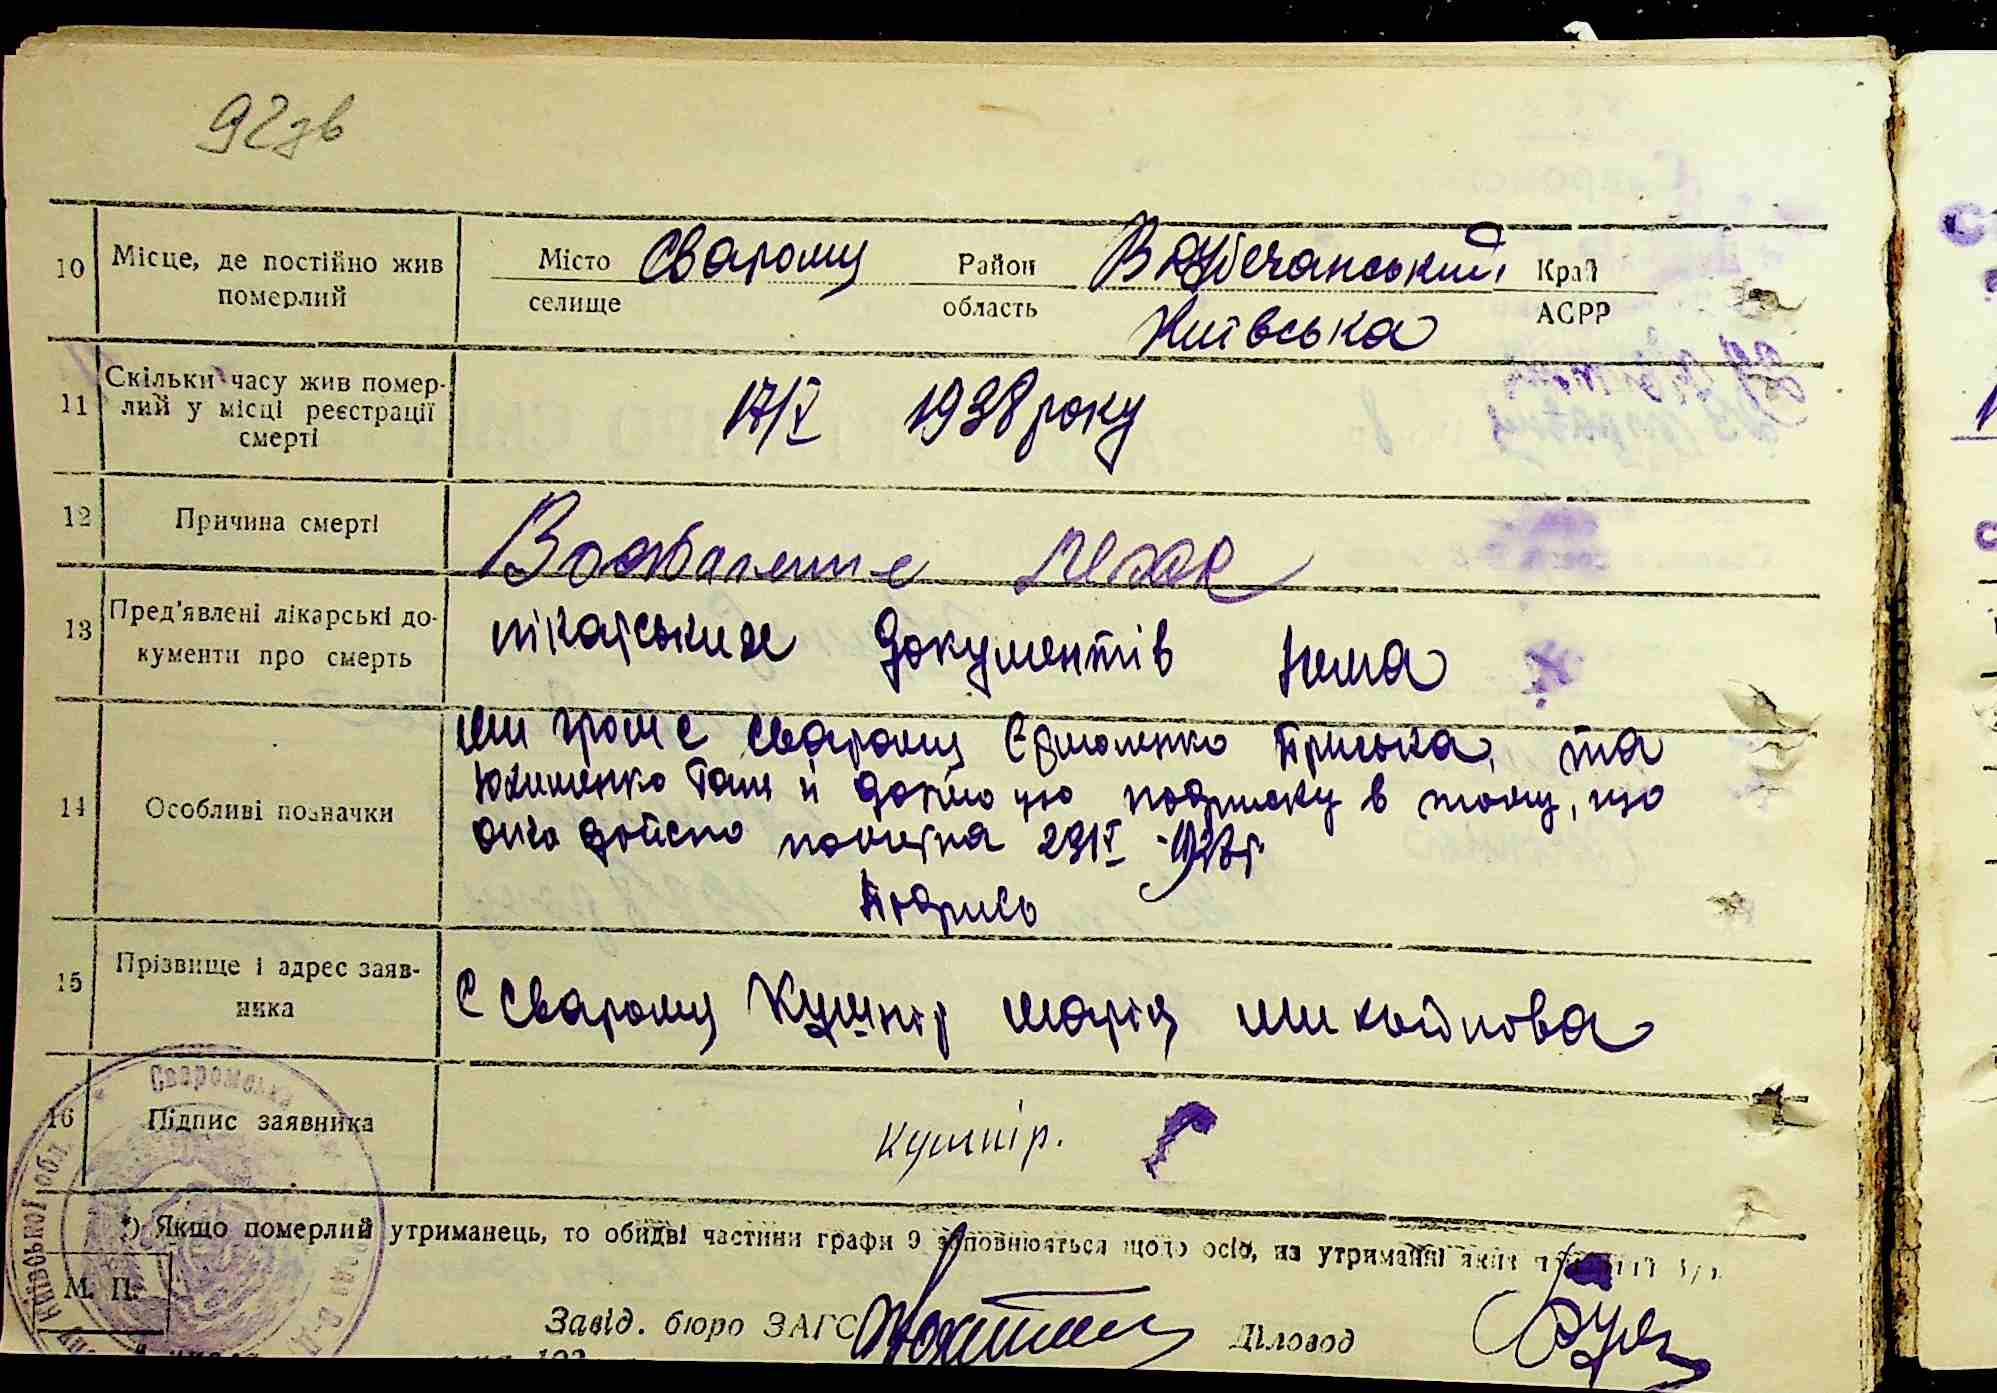 92зв
10 Місце, де постійно жив померлий
Місто Сваромʼя Район В Дубечанський Край
селище область Київська АСРР
11 Скільки часу жив помер-
лий у місці реєстрації
смерті
17/V 1938 року
12 Причина смерті
Воспаление легке
13 Пред'явлені лікарські до-
кументи про смерть
лікарських документів нема
14 Особливі позначки
Ми гром с Сваромя Єрмоленко Приська, та
Юхименко Ганя й даємо цю подписку в тому, що
дійсно померла
Подпись
15 Прізвище і адрес заяв-
ника
с Сваромя Кушнір Марія Миколайовна
16 Підпис заявника
Кушнір.
*) Якщо померлий утриманець, то обидві частини графи 9 заповнюються щодо осіб, на утриманні яких
М. П.
Завід. бюро ЗАГС
Діловод